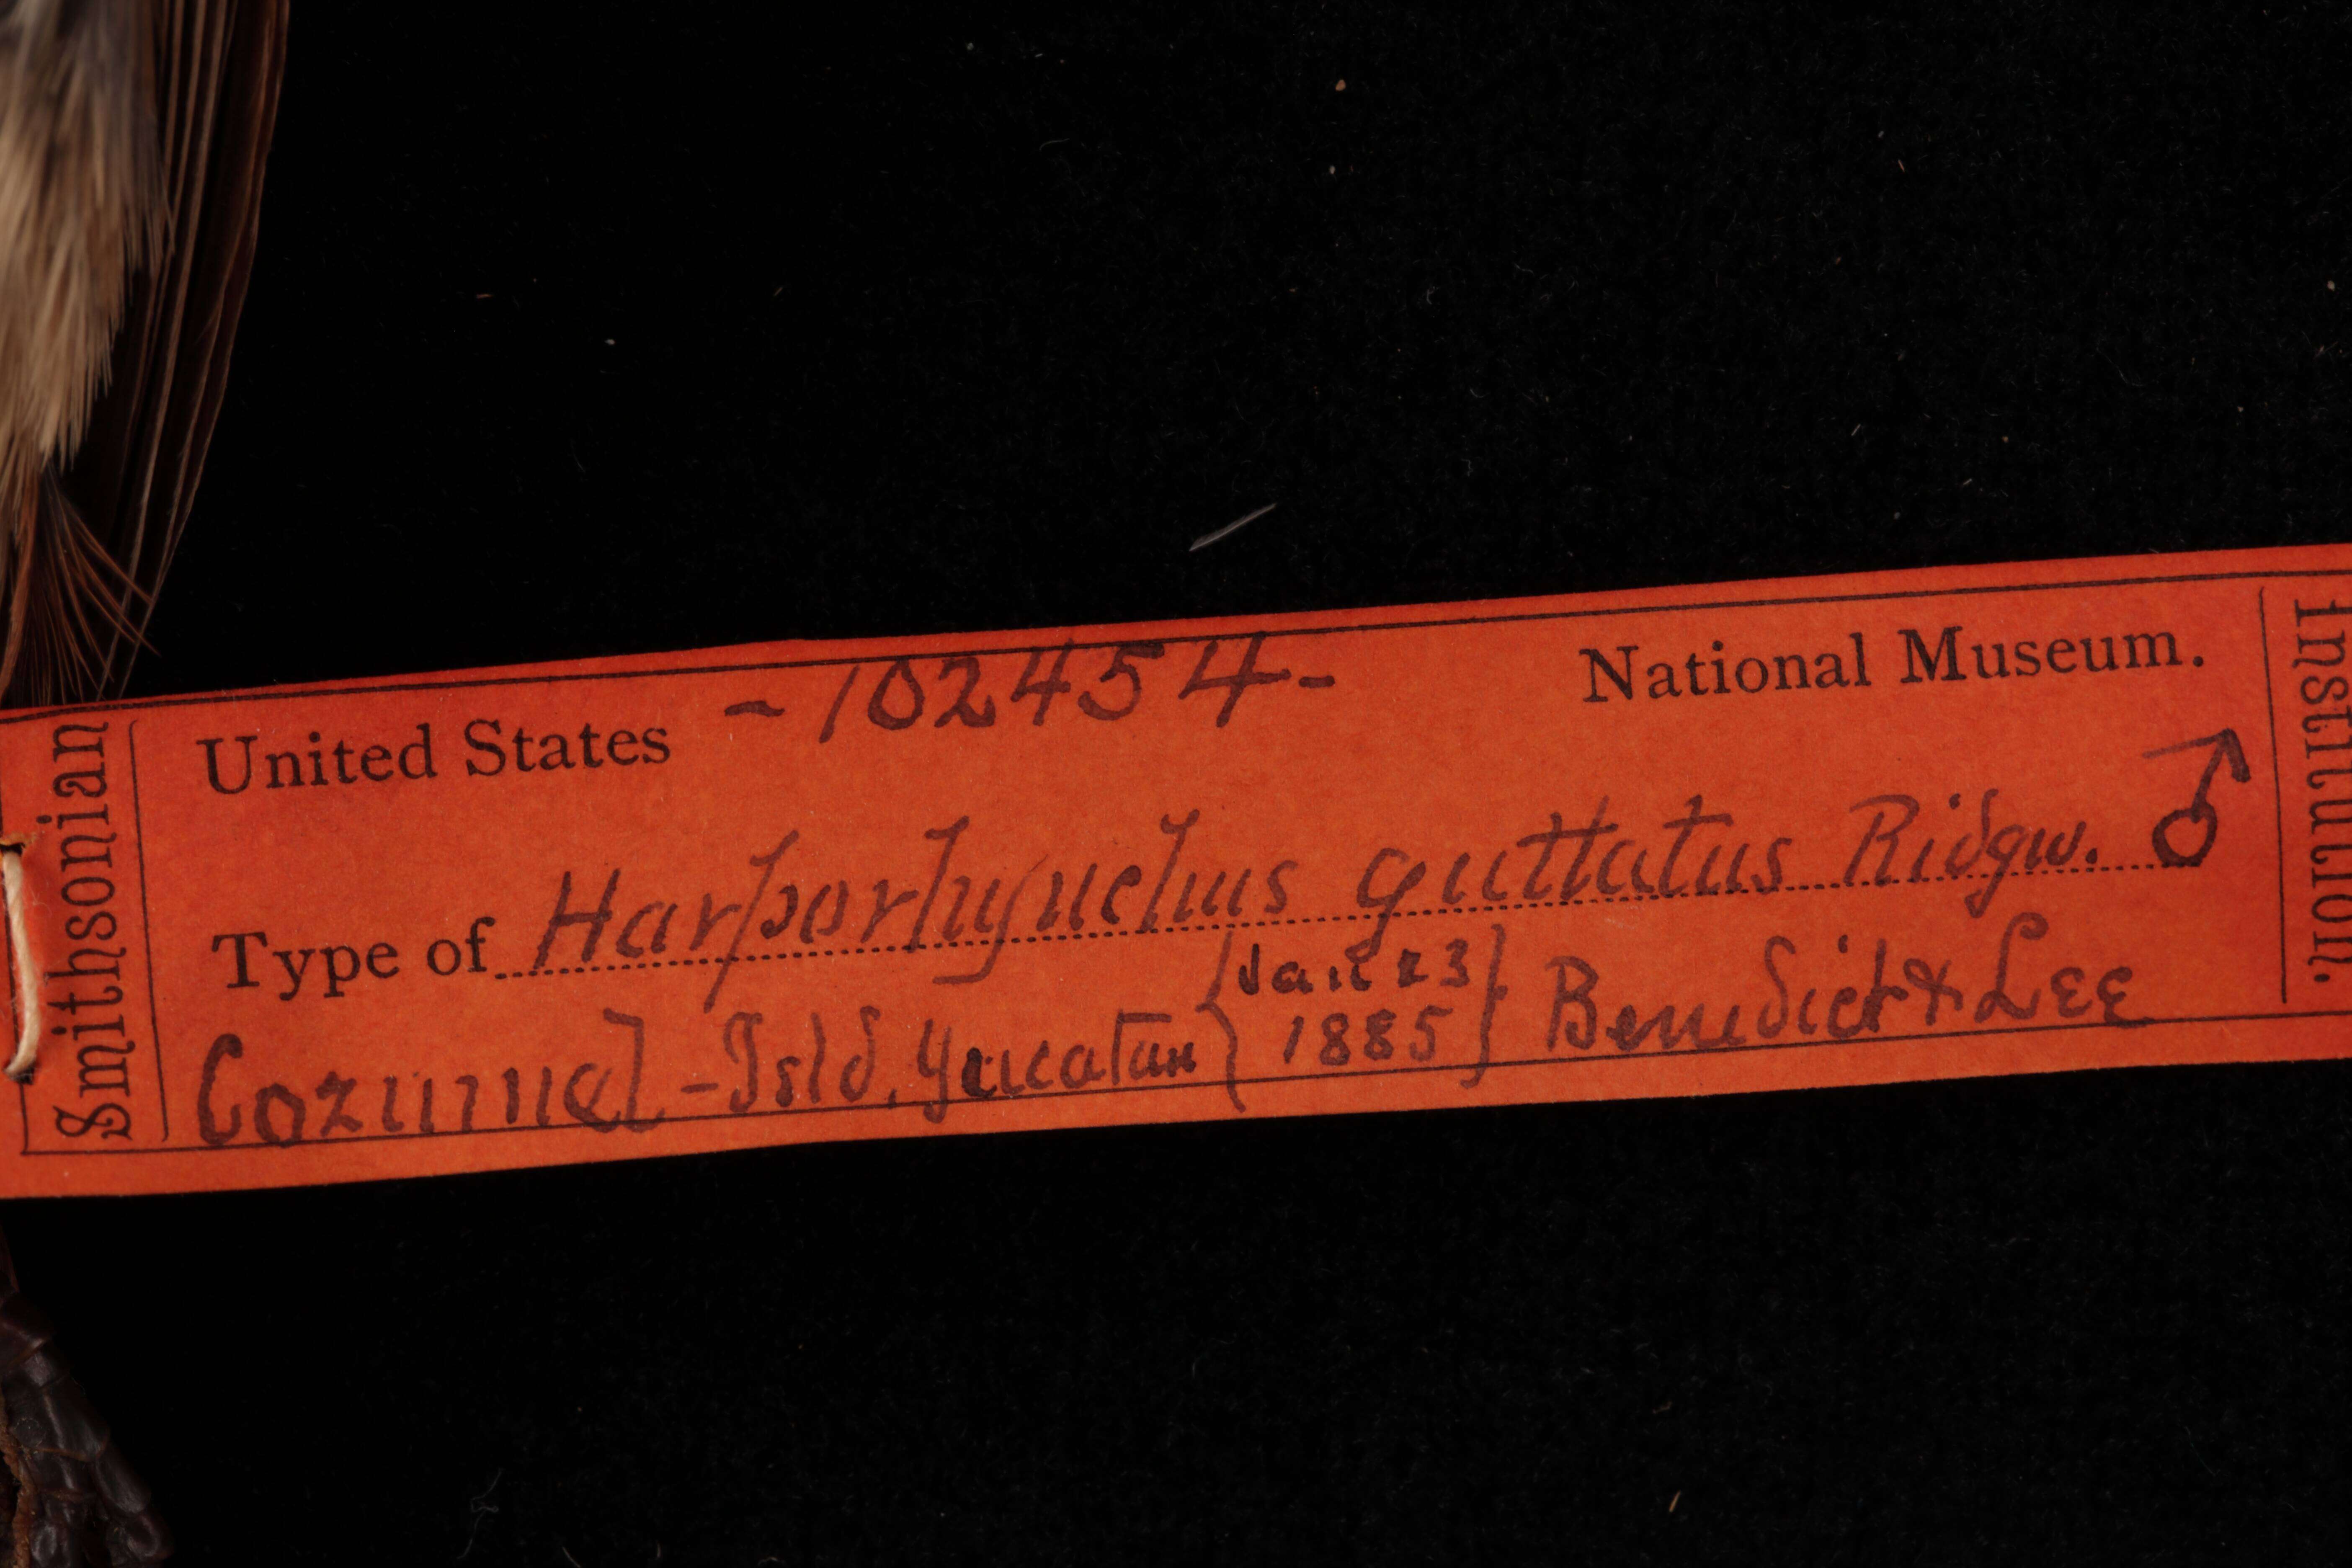 Smithsonian
United States -102454- National Museum.
Type of Harporhynchus guttatus Ridgw. ♂
Cozumel - Isld. Yucatan { Jan 23 1885 } Benedict & Lee
Institution.